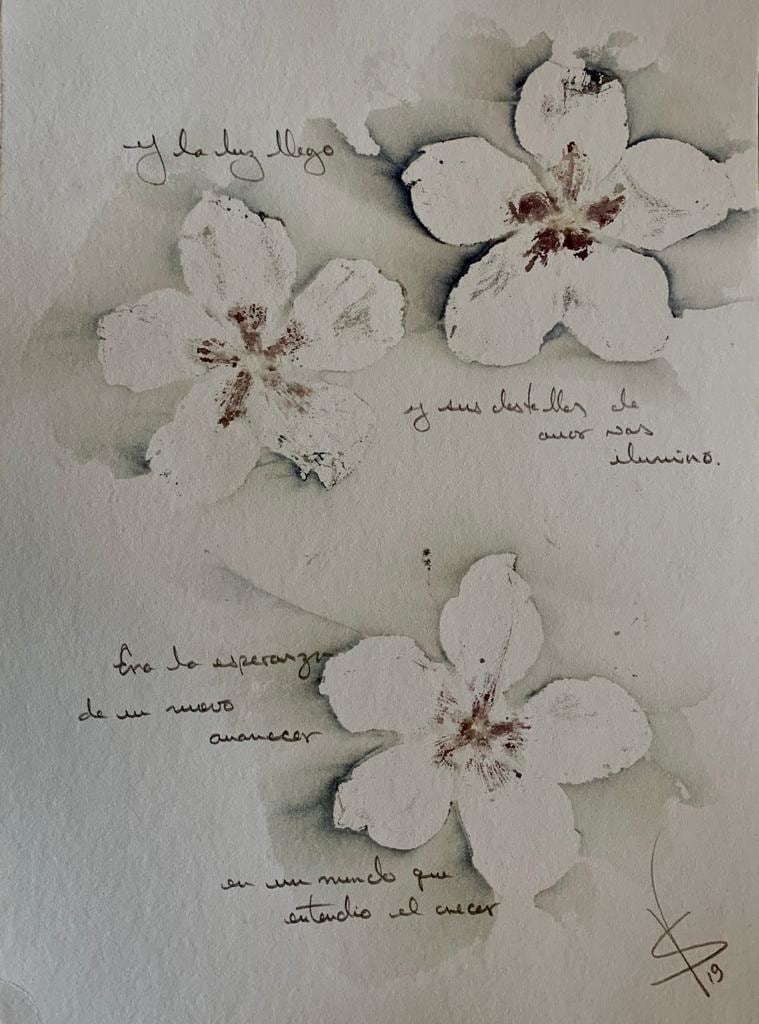 Y la luz llego
y sus destellos de
amor nos
ilumino.
Era la esperanza
de un nuevo
amanecer
en un mundo que
entendio el crecer
19